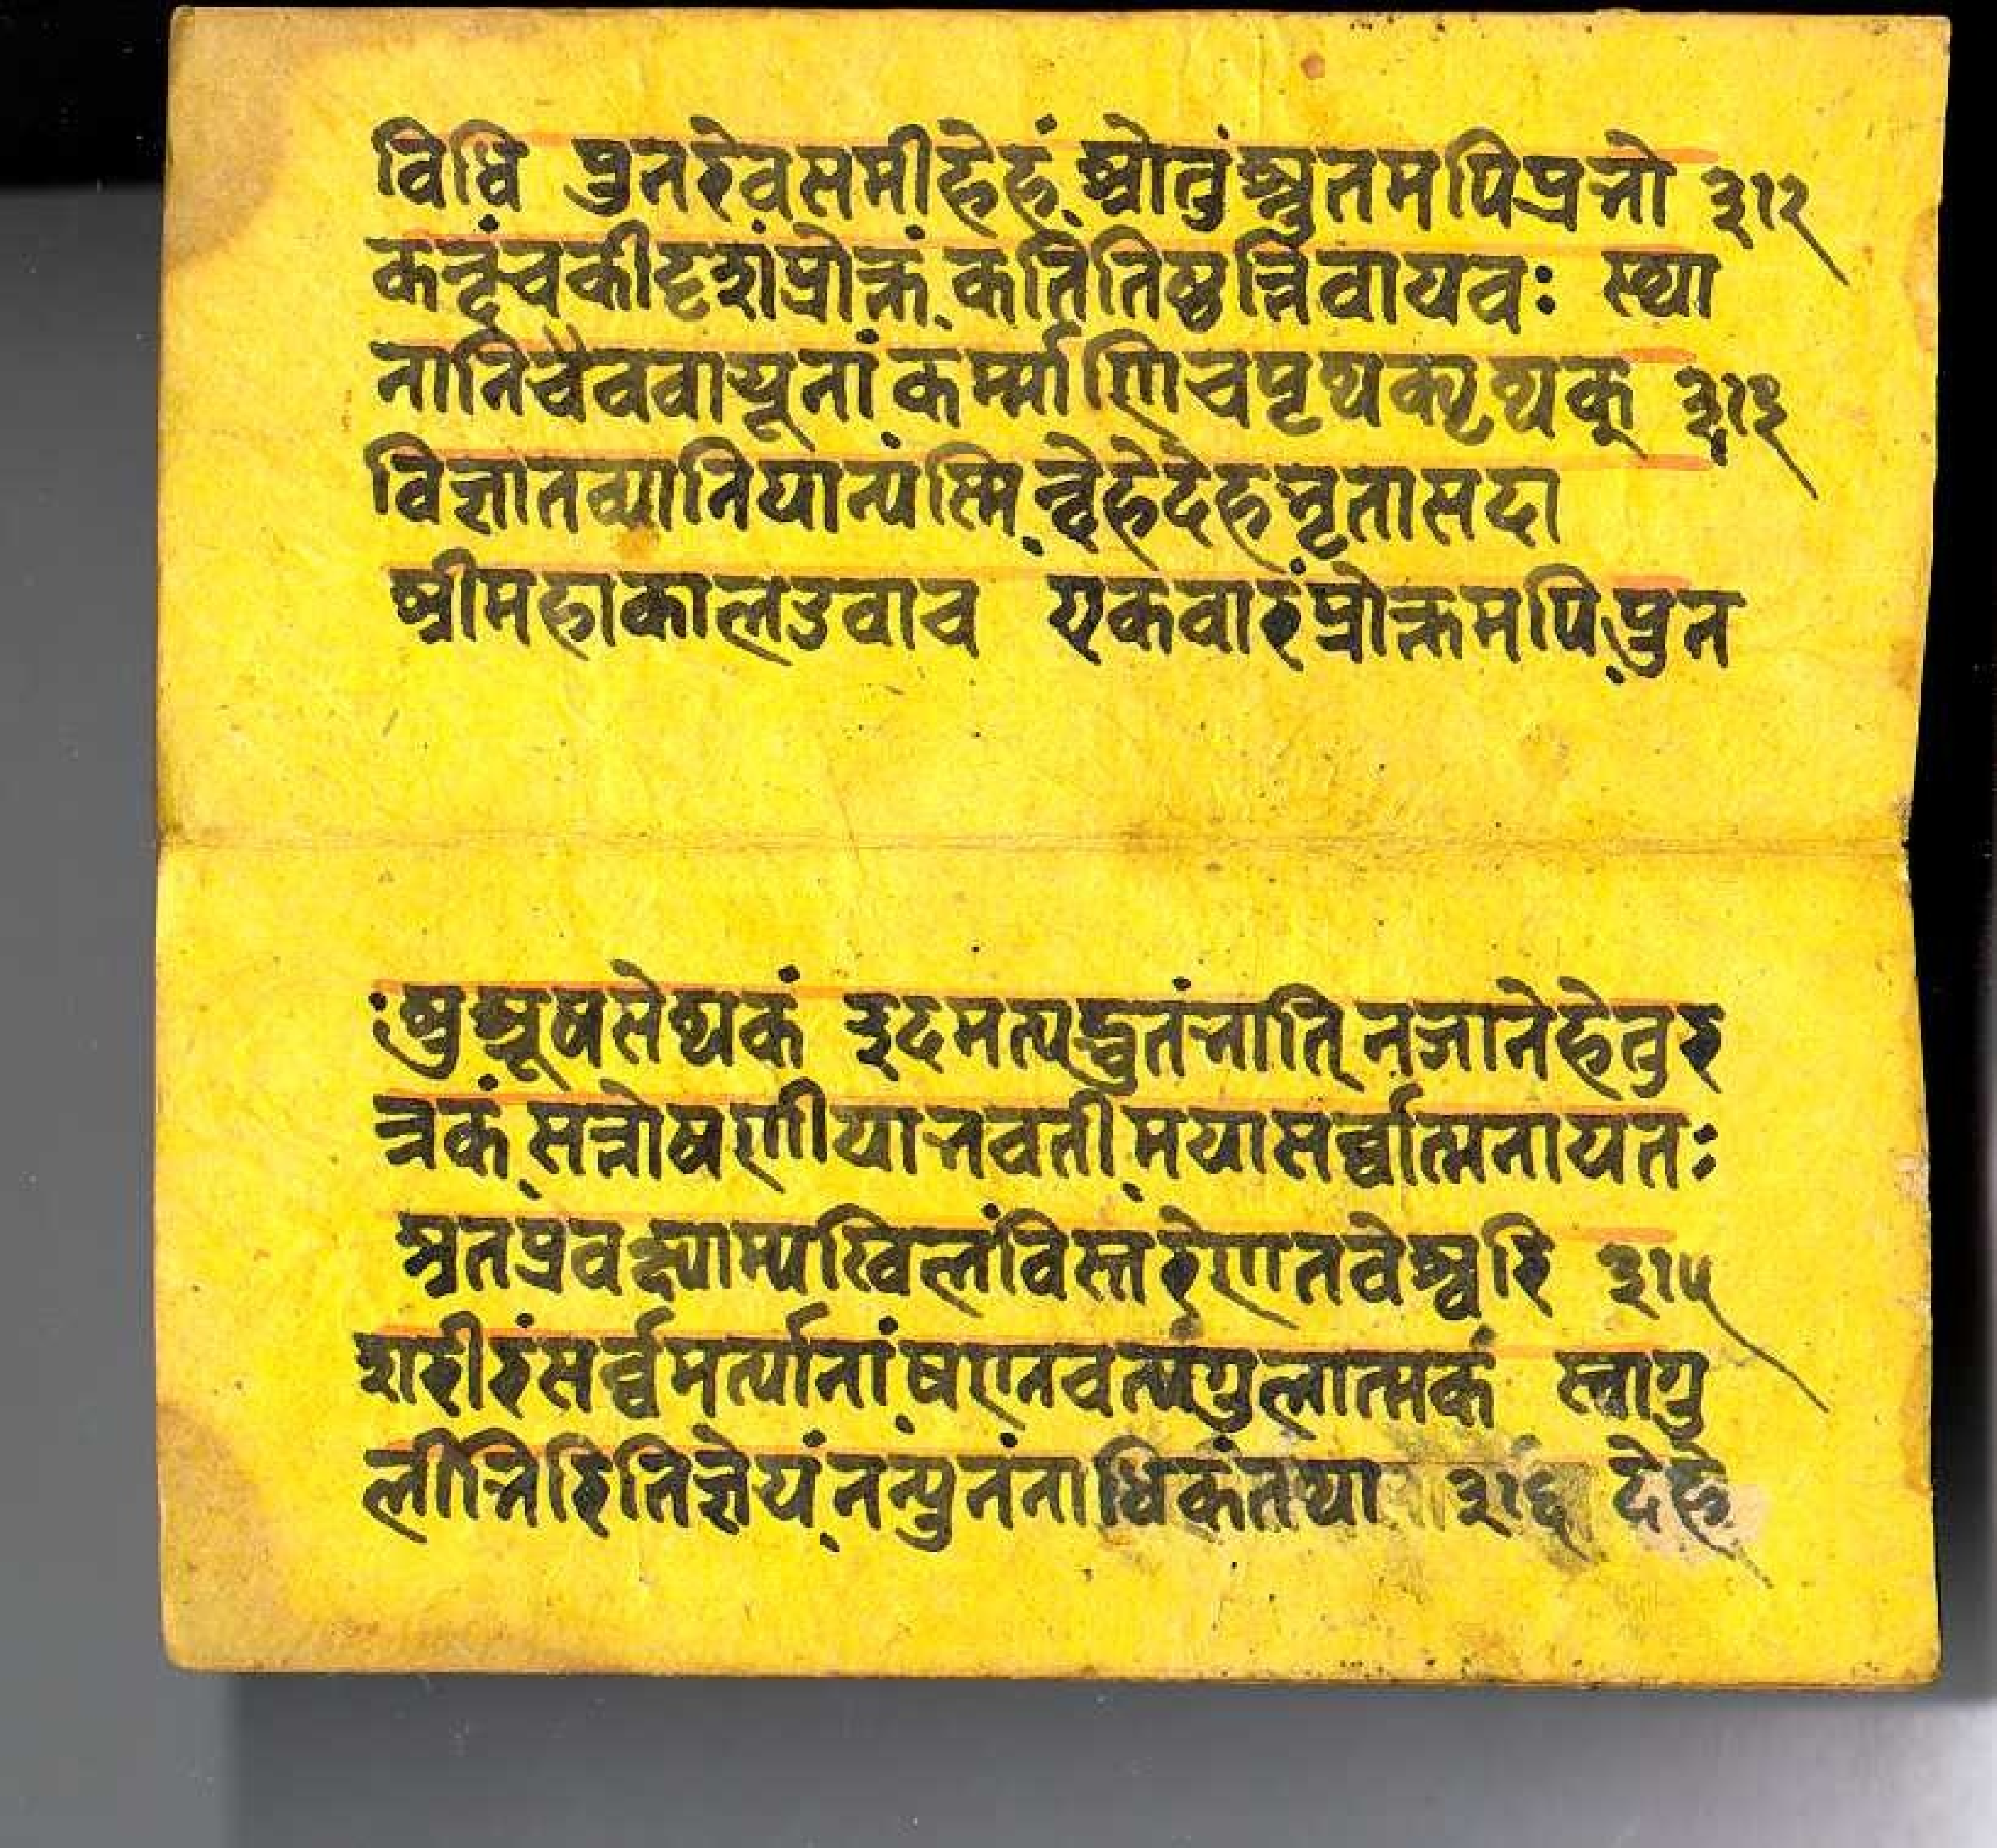 विधि पुनरेवसमीहेहं श्रोतुंश्रुतमपिप्रभो ३१२
कन्दंचकीदृशंप्रोक्तं कतितिष्ठन्तिवायवः स्था
नानिचैववायूनां कर्म्माणिचपृथक्पृथक् ३१३
विज्ञातव्यानियान्यस्मि न्देहेदेहभृतासदा
श्रीमहाकालउवाच एकवारंप्रोक्तमपि पुन
ःशुश्रूषसेथकं इदमत्यद्भुतंभाति नजानेहेतुर
त्रकं सन्तोषणीयाभवती मयासर्व्वात्मनायतः
श्रुतप्रवक्ष्याम्यखिलंविस्तरेणतवेश्वरि ३१५
शरीरंसर्व्वमर्त्यानां षण्नवत्यङ्गुलात्मकं स्नायु
लीभिरितिज्ञेयं नन्युनंनाधिकंतथा ३१६ देहे